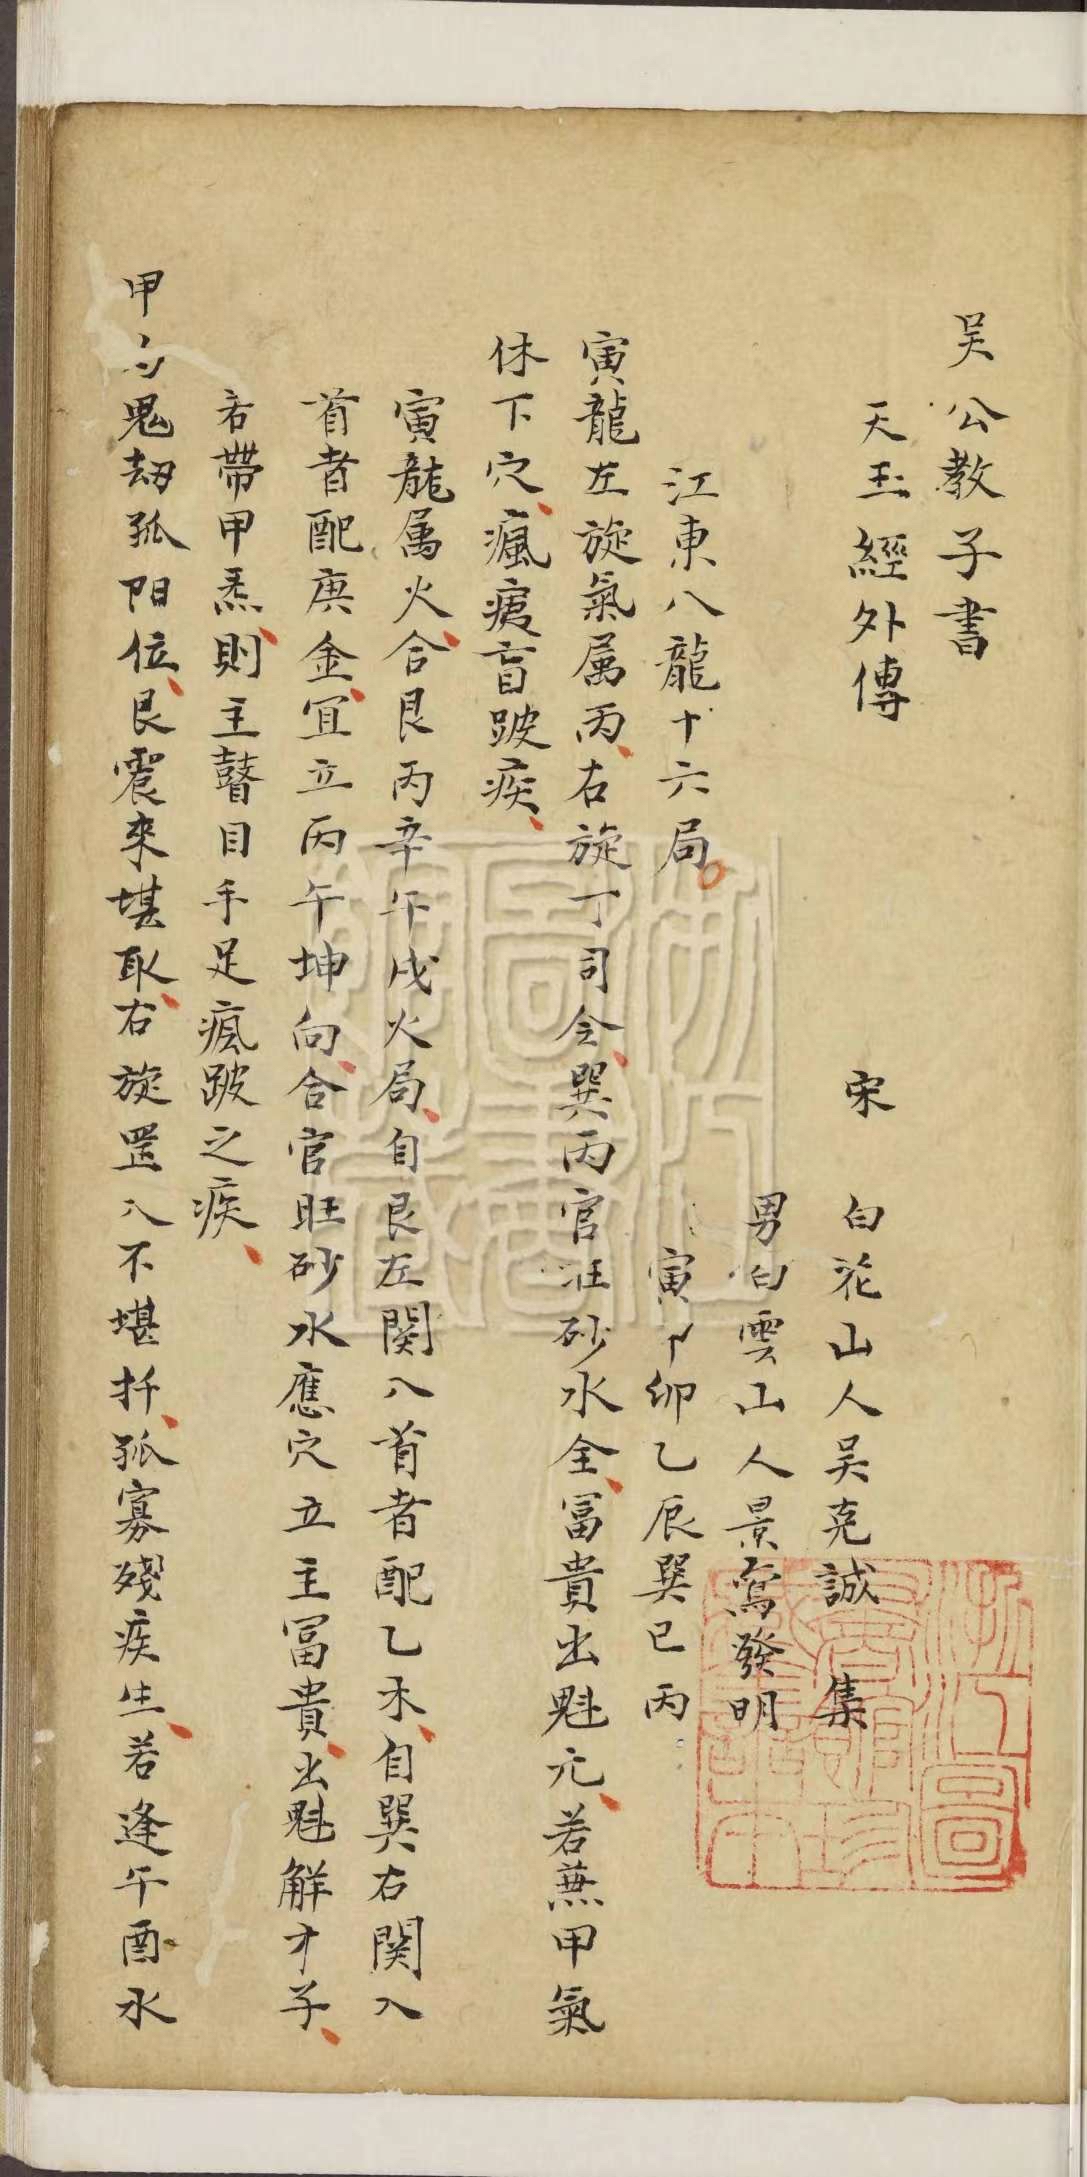 吴公教子書
天玉經外傳
宋 白花山人吴克誠 集
男白雲山人景鸞發明
江東八龍十六局 寅甲卯乙辰巽巳丙
寅龍左旋氣属丙右旋丁司令巽丙官旺砂水全冨貴出魁元若無甲氣
休下穴瘋痍盲跛疾
寅龍属火合艮丙辛午戌火局自艮左関八首者配乙木自巽右関入
首者配庚金宜立丙午坤向合官旺砂水應穴立主冨貴出魁解才子
若帶甲炁則主瞽目手足瘋跛之疾
甲為鬼刼孤陽位艮震來堪取右旋罡八不堪扦孤寡殘疾生若逢午酉水
浙江圖書館珍藏善本
浙江圖書館藏書